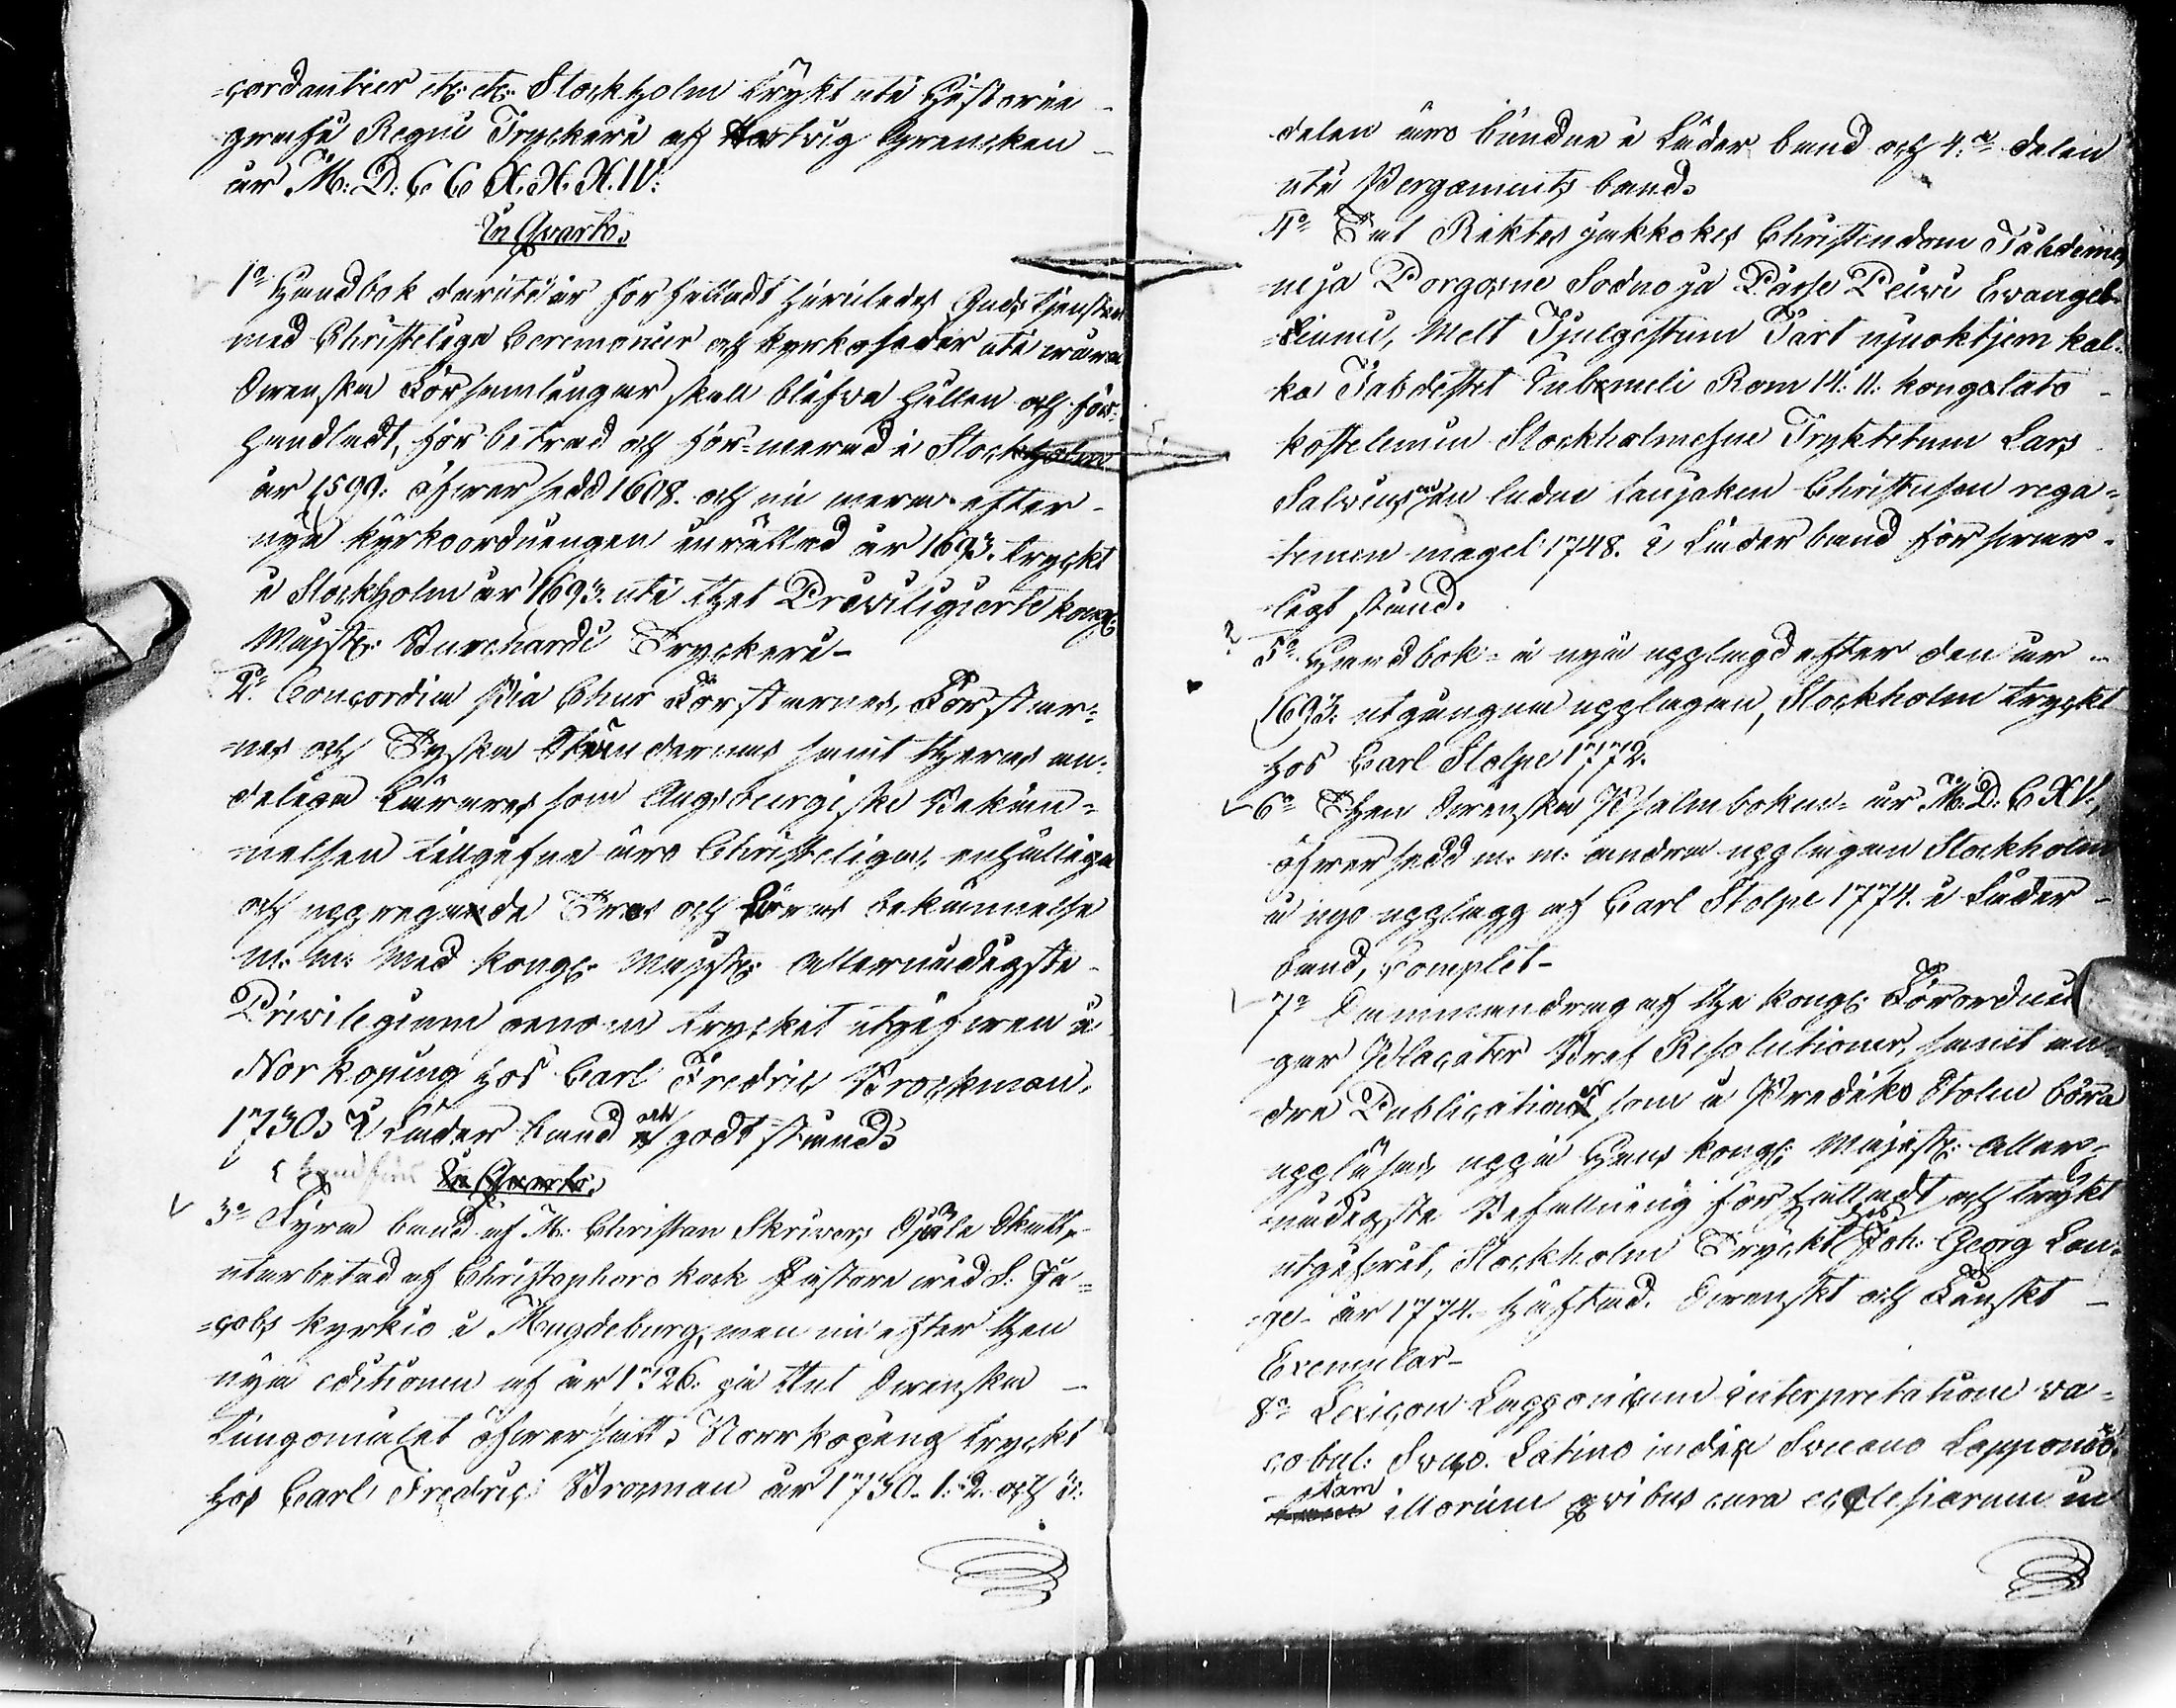 =cordantier etc: etc: Stockholm Trykt uti Historio
grafi Regni Tryckeri af Hartvig Gerncken
år M: D: C C X. X. X. IV:
In Quarto.
1o Handbok deruti är författadt huruledes Gudstjensten
med Christeliga Ceremonier och kyrkoseder uti wåra
Swenska Församlingar skall blifwa hållen och för=
handlad, förbetrad och för=merad i Stockholm
år 1599: öfwersedd 1608. och nu mera efter
nya kyrkoordningen inrättad år 1693. tryckt
i Stockholm år 1693. uti thet Privilegierte kongl:
Majsts: Burchardi Tryckeri-
2o Concordia Pia Chur Förstarnes, Förstar=
nes och Tyska Ständernas samt theras an=
deliga Lärares som Augsburgiske Bekän=
nelsen tillgifne äro Christeliga, enhälliga
och upprepade Tros och Läras bekännelse
m. m. Med kongl: Majsts: Allernådigste
Privilegium genom trycket utgifwen i
Norkoping hos Carl Fredric Brockman.
1730. I Läder band och godt stånd.
In Quarto.
3o Fyra band af M: Christan Skrivers Själe Skatt
utarbetad af Christophoro kock Pastore wed S: Ja=
=cobs kyrkio i Magdeburg, men nu efter then
nya editionen af år 1726: på thet Swenska
Tungomålet öfwersatt. Norrkoping tryckt
hos Carl Fredric Brocman år 1730. 1. 2. och 3:
delen äro bundne i Läder band och 4:de delen
uti Pergaments band.
4o Tat Riktes jakkokes Christendom Tabdeme,
neja Porgosne Sodno ja Passe Peiwi Evangel
=iumi, Melt Tjulgestum Tart njuoktjem kal=
ka Tabdestet Tubmeli Rom 14: 11: kongolato
kostelemin Stockholmesne Tryktetum Lars
Salvius en ludne Christusen rega=
temen magel 1748. i Läder band förswar=
ligt stånd.
? 5o Handbok = å nyo upplagd efter den år
1693: utgångna upplagan, Stockholm tryckt
hos Carl Stolpe 1772.
6o Then Swenska Psalmboken= år M: D: C XV.
öfwersedd m. m. andra upplagan Stockholm
å nyo upplagg af Carl Stolpe 1774. i Läder
band, Complet-
7o Sammandrag af the kongl: Förordnin
gar Placater Bref Resolutioner, samt an
dre Publicationer som å Predikostolen böra
uppläsas, uppå Hans kongl: Majsts: Aller=
nådigste Befallning författadt och trykt
utgifwit, Stockholm Tryckt hos Joh: Georg Lan=
ge- år 1774. Häftad. Swenskt och Finskt
Exemplar-
8o Lexicon Lapponicum interpretatione vo=
cabul: Sveco. Latino indice Svecano Lapponico.
tam illorum qvibus cura ecclesiarum in